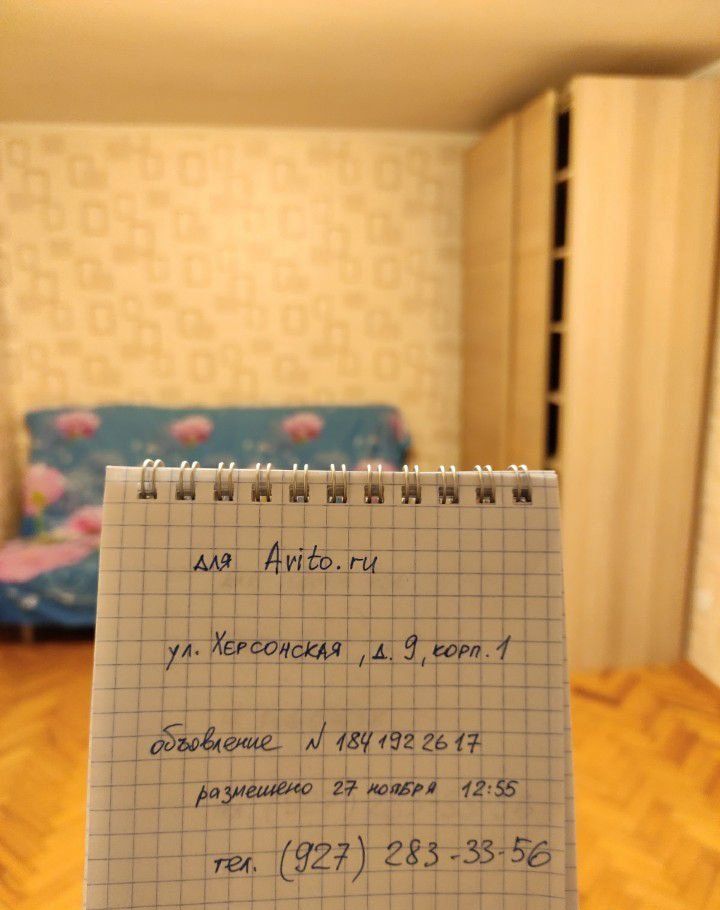 для Avito.ru
ул. Херсонская, д. 9, корп. 1
объовление N 1841922617
размешено 27 ноября 12:55
тел. (927) 283-33-56